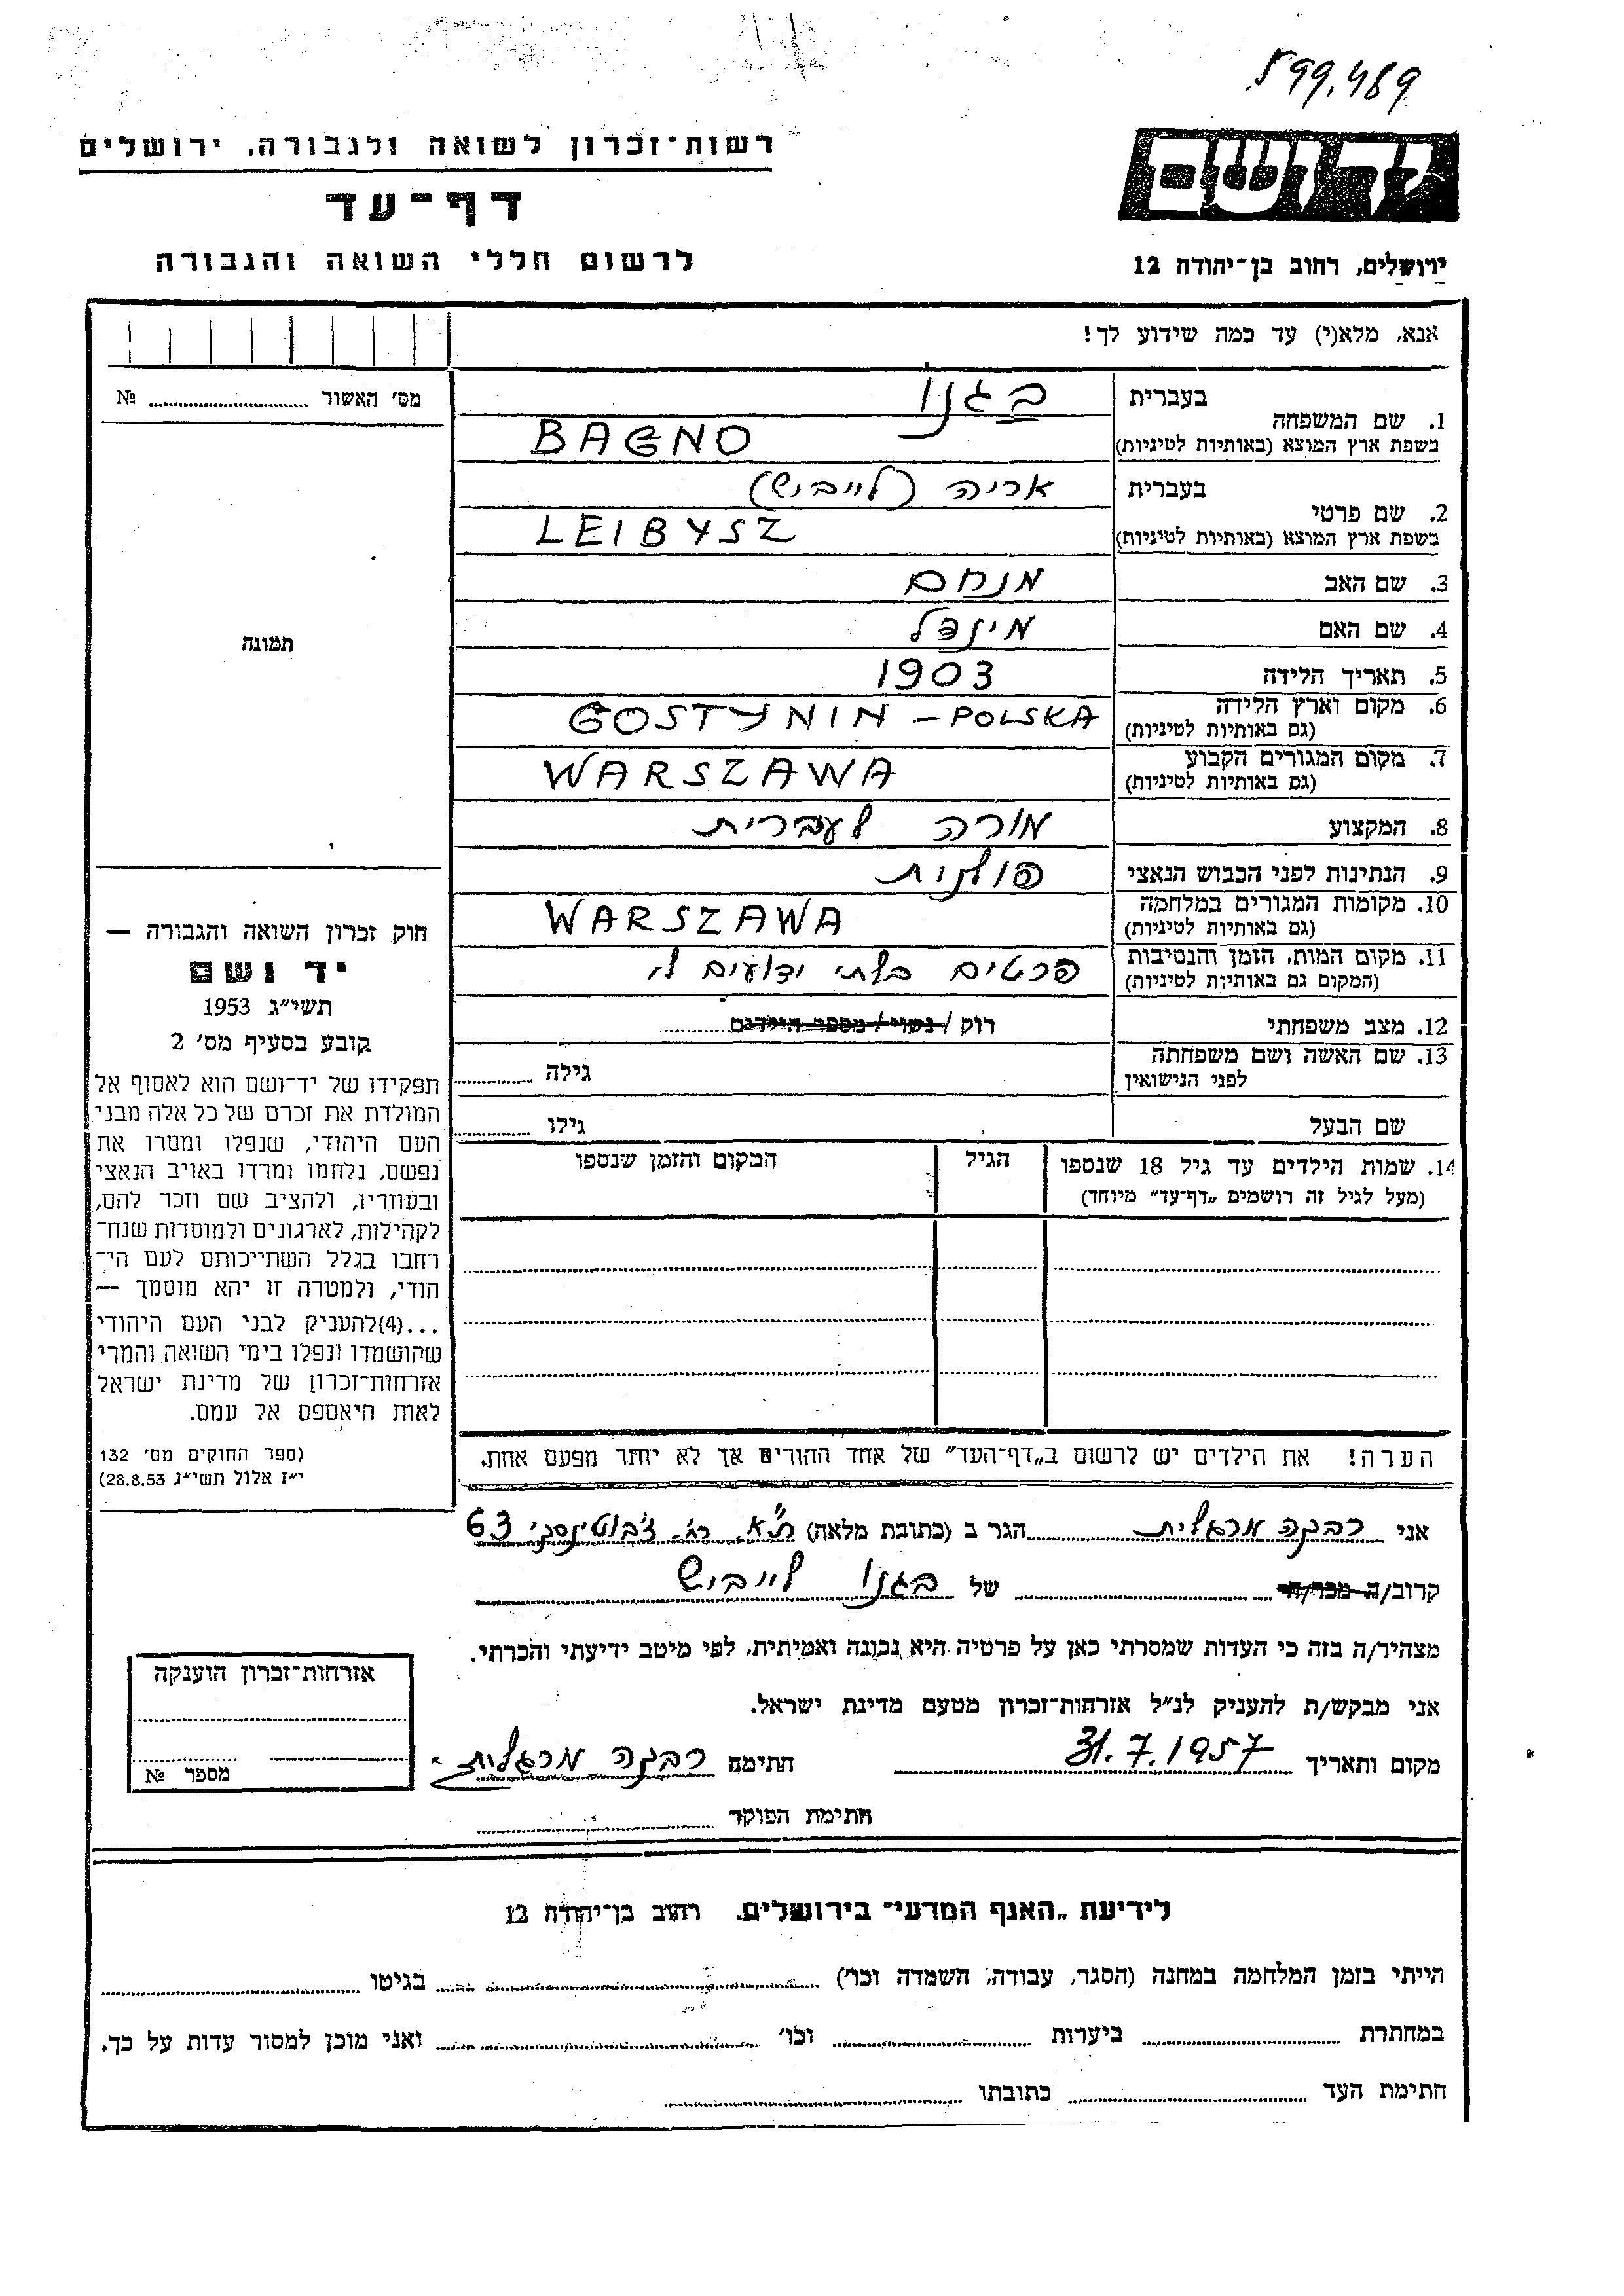 599.489
רשות־זכרון לשואה ולגבורה, ירושלים
דף־עד
לרשום חללי השואה והגבורה
יד ושם
ירושלים, רחוב בן־יהודה 12
אנא, מלא(י) עד כמה שידוע לך!
מס׳ האשור .......... №
תמונה
1. שם המשפחה בעברית בגנו
בשפת ארץ המוצא (באותיות לטיניות) BAGNO
2. שם פרטי בעברית אריה (לייביש)
בשפת ארץ המוצא (באותיות לטיניות) LEIBYSZ
3. שם האב מנחם
4. שם האם מינדל
5. תאריך הלידה 1903
6. מקום וארץ הלידה GOSTYNIN – POLSKA
(גם באותיות לטיניות)
7. מקום המגורים הקבוע WARSZAWA
(גם באותיות לטיניות)
8. המקצוע מורה לעברית
9. הנתינות לפני הכבוש הנאצי פולנית
10. מקומות המגורים במלחמה WARSZAWA
(גם באותיות לטיניות)
11. מקום המות, הזמן והנסיבות פרטים בלתי ידועים לי
(המקום גם באותיות לטיניות)
12. מצב משפחתי רוק / נשוי / מספר הילדים ..........
13. שם האשה ושם משפחתה גילה ..........
לפני הנישואין
שם הבעל גילו ..........
14. שמות הילדים עד גיל 18 שנספו הגיל המקום והזמן שנספו
(מעל לגיל זה רושמים „דף־עד״ מיוחד)
הערה! את הילדים יש לרשום ב„דף־העד״ של אחד ההורים אך לא יותר מפעם אחת.
חוק זכרון השואה והגבורה —
יד ושם
תשי״ג 1953
קובע בסעיף מס׳ 2
תפקידו של יד־ושם הוא לאסוף אל
המולדת את זכרם של כל אלה מבני
העם היהודי, שנפלו ומסרו את
נפשם, נלחמו ומרדו באויב הנאצי
ובעוזריו, ולהציב שם וזכר להם,
לקהילות, לארגונים ולמוסדות שנח־
רחבו בגלל השתייכותם לעם הי־
הודי, ולמטרה זו יהא מוסמך —
...(4)להעניק לבני העם היהודי
שהושמדו ונפלו בימי השואה והמרי
אזרחות־זכרון של מדינת ישראל
לאות היאספם אל עמם.
(ספר החוקים מס׳ 132
י״ז אלול תשי״ג 28.8.53)
אני רבקה מרגלית הגר ב (כתובת מלאה) ת״א, רח. ז׳בוטינסקי 63
קרוב/ה מכר/ה .......... של בגנו לייביש
מצהיר/ה בזה כי העדות שמסרתי כאן על פרטיה היא נכונה ואמיתית, לפי מיטב ידיעתי והכרתי.
אני מבקש/ת להעניק לנ״ל אזרחות־זכרון מטעם מדינת ישראל.
מקום ותאריך 31.7.1957 חתימה רבקה מרגלית
חתימת הפוקד ..........
אזרחות־זכרון הוענקה
מספר №
לידיעת „האגף המדעי״ בירושלים. רחוב בן־יהודה 12
הייתי בזמן המלחמה במחנה (הסגר, עבודה, השמדה וכו׳) .......... בגיטו ..........
במחתרת .......... ביערות .......... וכו׳ .......... ואני מוכן למסור עדות על כך.
חתימת העד .......... כתובתו ..........